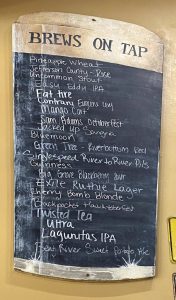 BREWS ON TAP
Pineapple Wheat
Jefferson County
Uncommon Stout
Easy Eddy IPA
Fat tire
Contrary
Mango Cart
Sam Adams Octoberfest
Jacked Up Sangria
Bluemoon
Green Tree -
Singlespeed River to River Pils
Guinness
Big Grove Blackberry Sour
Exile Ruthie Lager
Cherry Bomb Blonde
Backpocket
Twisted Tea
Ultra
Lagunitas IPA
River Sweet Potato Ale